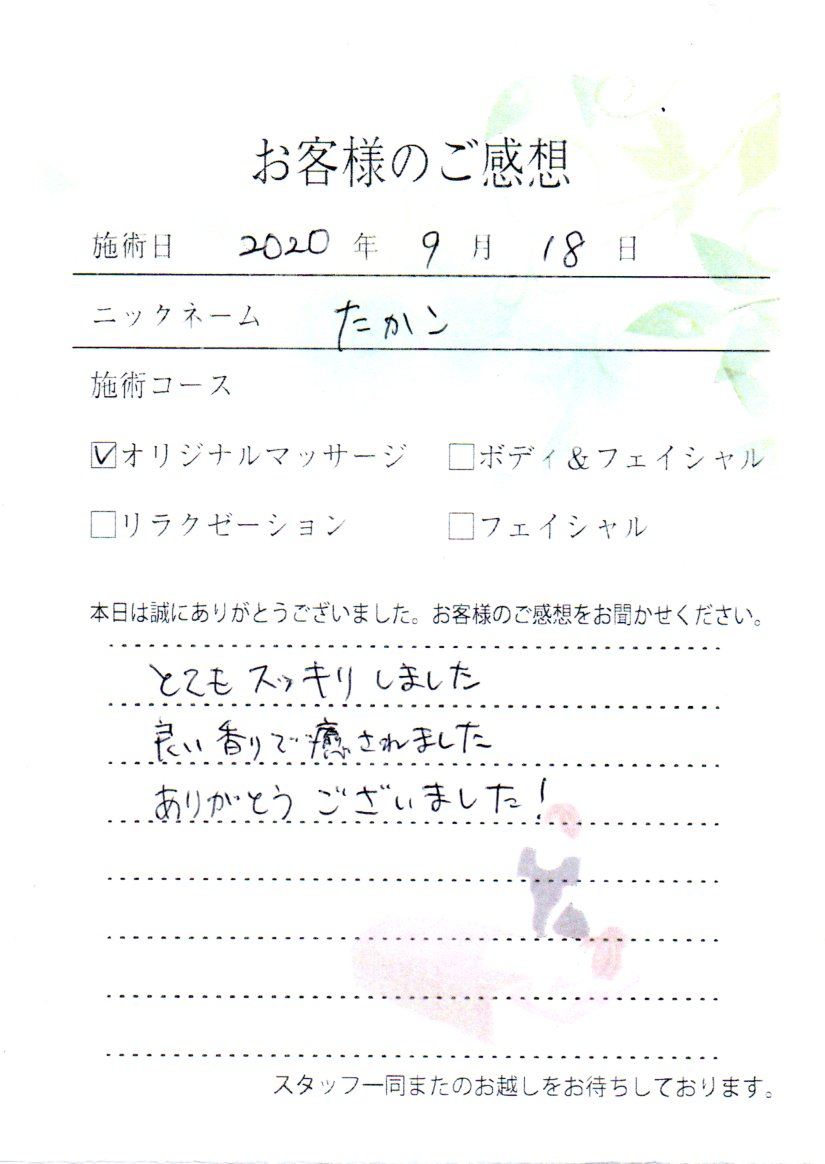 お客様のご感想
施術日 2020 年 9 月 18 日
ニックネーム たかこ
施術コース
☑オリジナルマッサージ □ボディ&フェイシャル
□リラクゼーション □フェイシャル
本日は誠にありがとうございました。お客様のご感想をお聞かせください。
とても スッキリ しました
良い 香りで 癒されました
ありがとう ございました!
スタッフ一同またのお越しをお待ちしております。